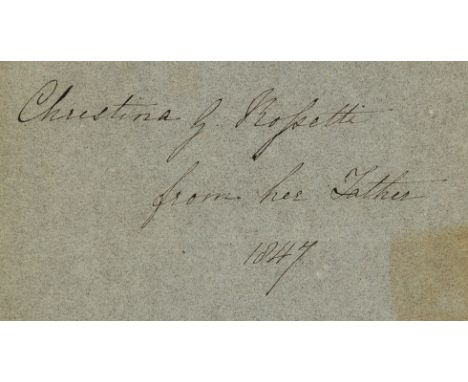 Christina G. Rossetti
from her Father
1847